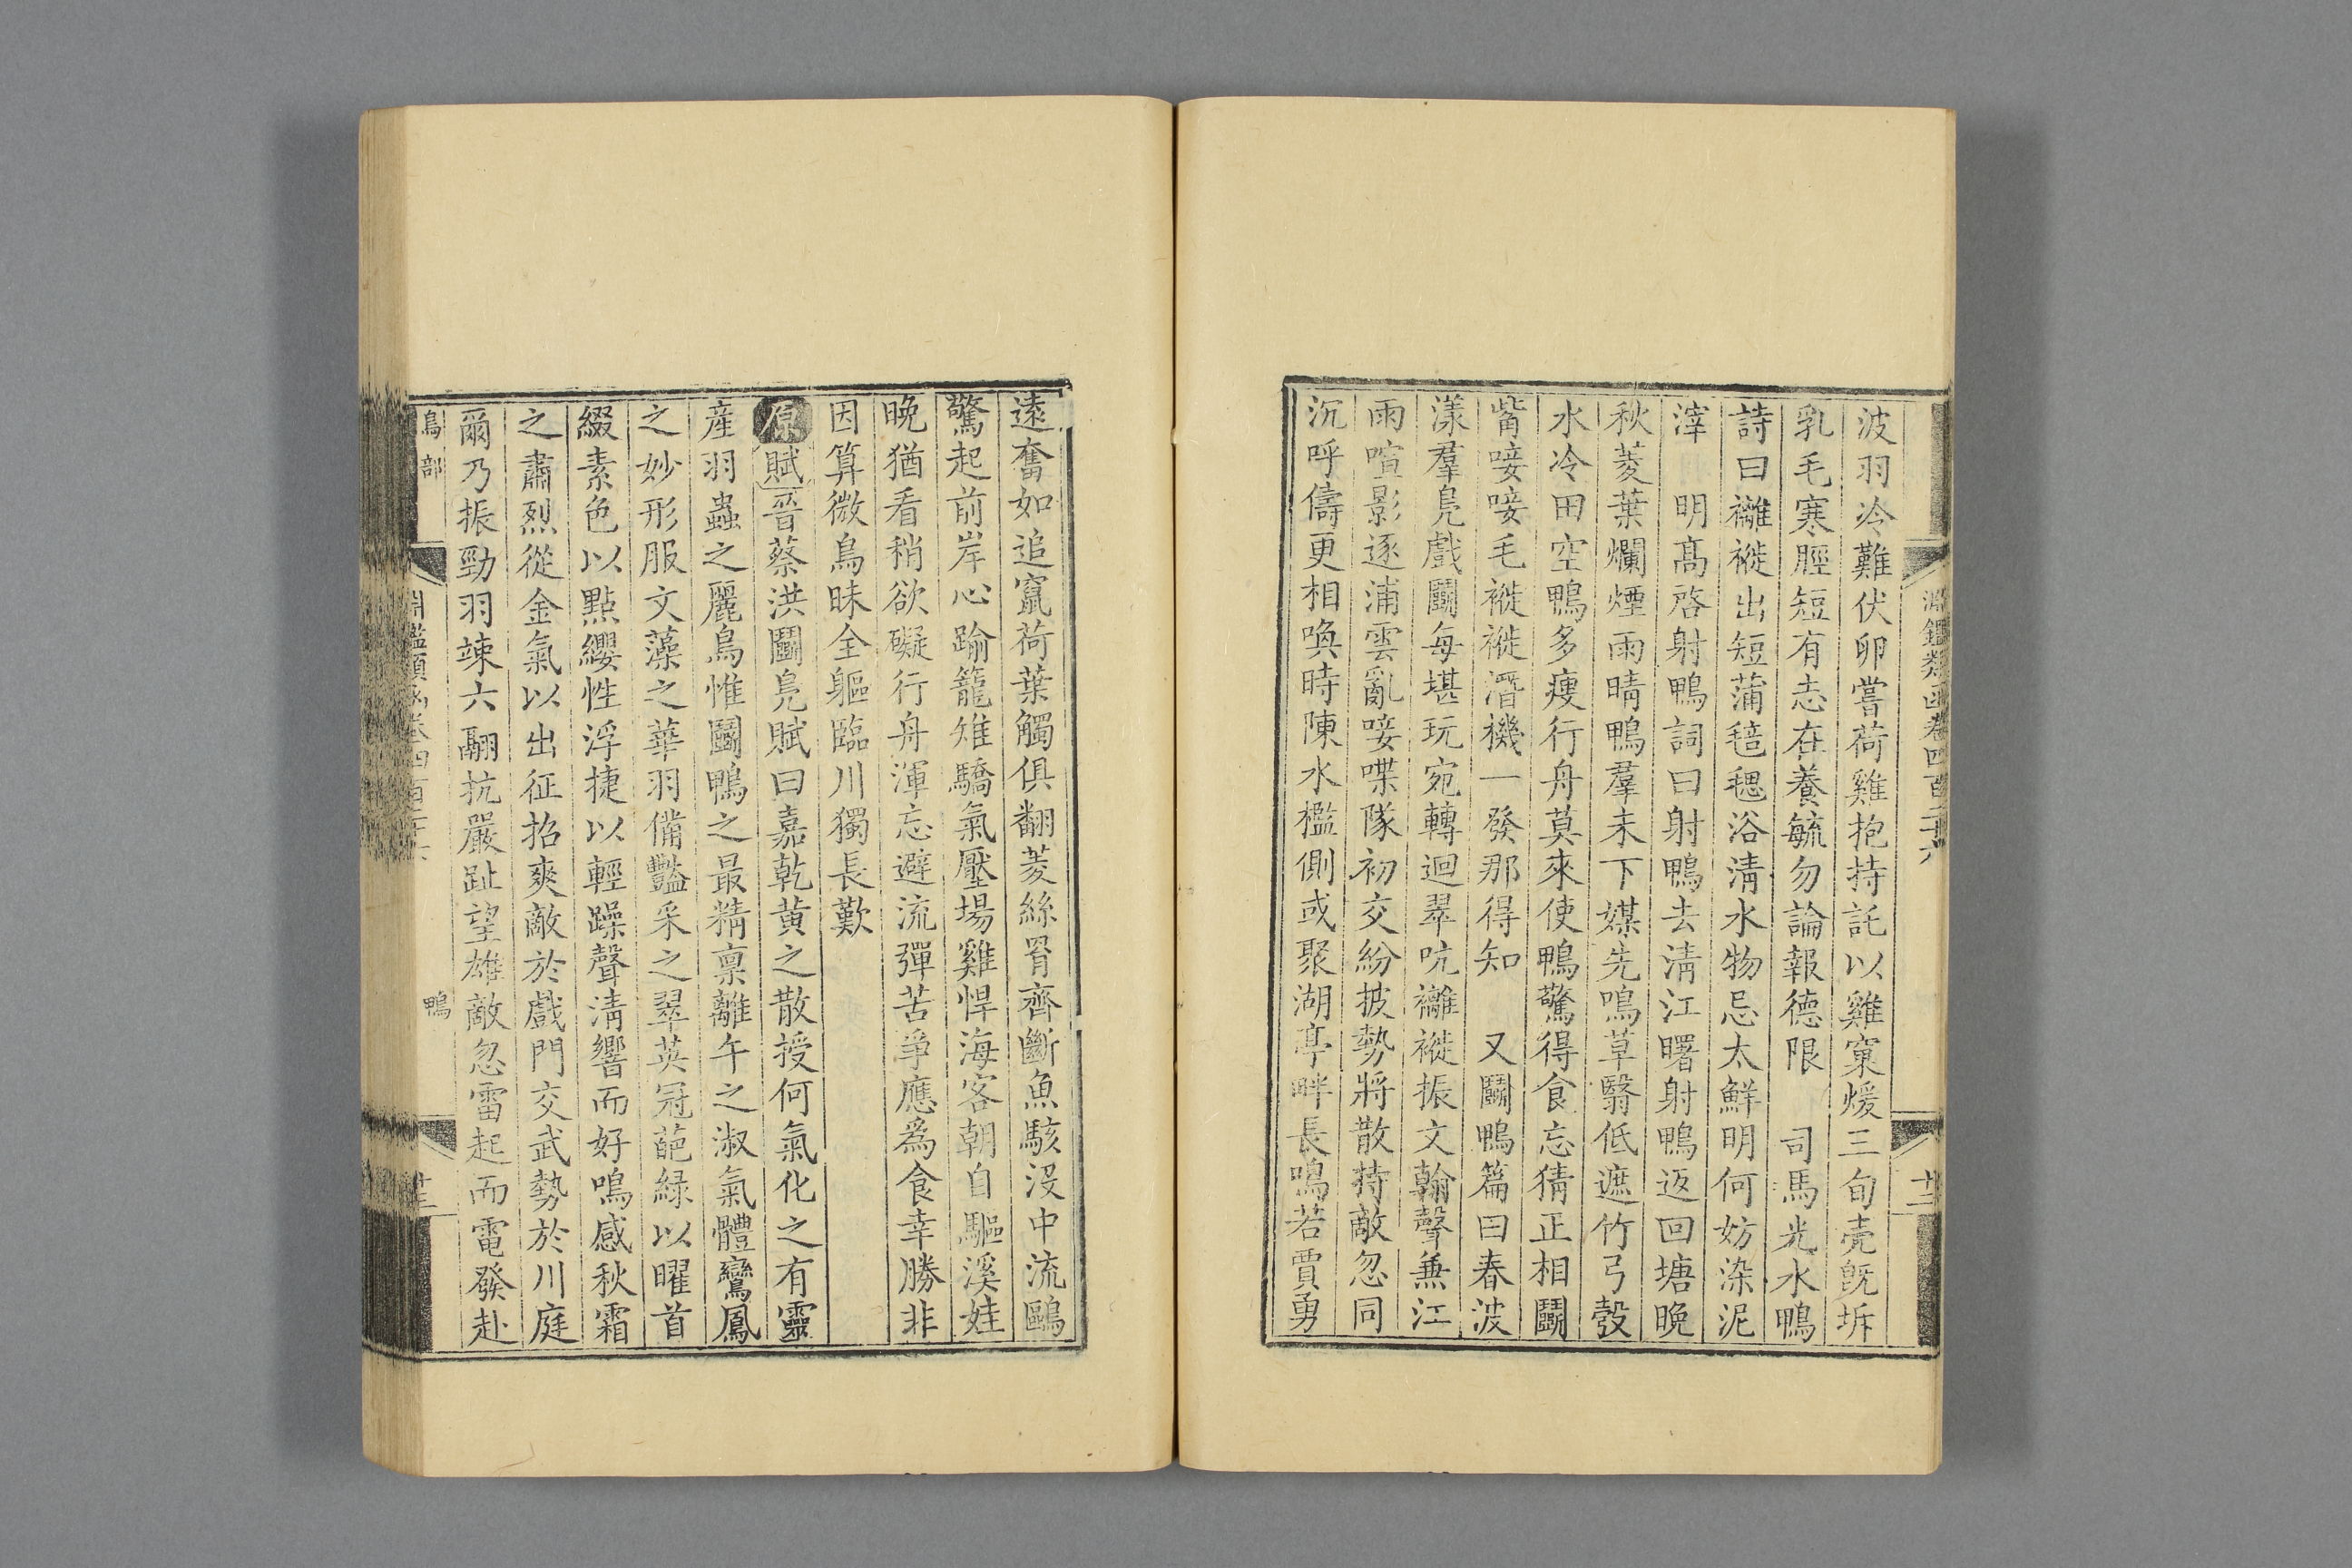 淵鑑類函卷四百二十六
廿三
波羽冷難伏卵嘗荷雞抱持託以雞窠煖三旬壳旣坼
乳毛寒脛短有志在養毓勿論報德限 司馬光水鴨
詩曰襳褷出短蒲毰毸浴淸水物忌太鮮明何妨染泥
滓 明高啓射鴨詞曰射鴨去淸江曙射鴨返回塘晚
秋菱葉爛煙雨晴鴨羣未下媒先鳴草翳低遮竹弓彀
水冷田空鴨多瘦行舟莫來使鴨驚得食忘猜正相鬭
觜唼唼毛褷褷潛機一發那得知 又鬭鴨篇曰春波
漾羣鳬戲鬭每堪玩宛轉迴翠吭襳褷振文翰聲兼江
雨喧影逐浦雲亂唼喋隊初交紛披勢將散持敵忽同
沉呼儔更相喚時陳水檻側或聚湖亭畔長鳴若賈勇
遠奮如追竄荷葉觸俱翻菱絲罥齊斷魚駭沒中流鷗
驚起前岸心踰籠雉驕氣壓場雞悍海客朝自驅溪娃
晚猶看稍欲礙行舟渾忘避流彈苦爭應爲食幸勝非
因算微鳥昧全軀臨川獨長歎
原賦晉蔡洪鬭鳬賦曰嘉乾黄之散授何氣化之有靈
産羽蟲之麗鳥惟鬭鴨之最精禀離午之淑氣體鸞鳳
之妙形服文藻之華羽備豔采之翠英冠葩緑以曜首
綴素色以點纓性浮捷以輕躁聲淸響而好鳴感秋霜
之肅烈從金氣以出征招爽敵於戲門交武勢於川庭
爾乃振勁羽竦六翮抗嚴趾望雄敵忽雷起而電發赴
鳥部
鴨